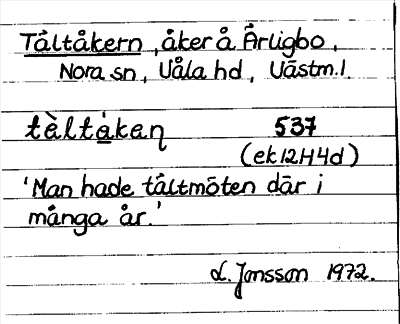 Tältåkern, åker å Ärligbo,
Nora sn, Våla hd, Västm.l.
tὲltå̀kaɳ 537
(ek 12H4d)
'Man hade tältmöten där i
många år.'
L. Jonsson 1972.